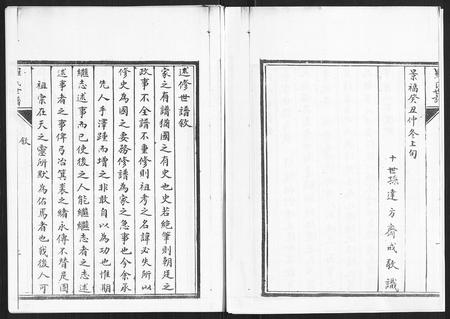 景福癸丑仲冬上旬
十世孫達方齋戒敬識
述修世譜敘
家之有譜猶國之有史也史若絕筆則朝廷之
政事不全譜不重修則祖考之名諱必失所以
修史為國之要務修譜為家之急事也今余承
先人手澤踵而增之非敢自以為功也惟期
繼志述事而已使後之人能繼繼志者之志述
述事者之事俾弓冶箕裘之緒永傳不替是固
祖宗在天之靈所默為佑篤者也我後人可
氏世譜
敘